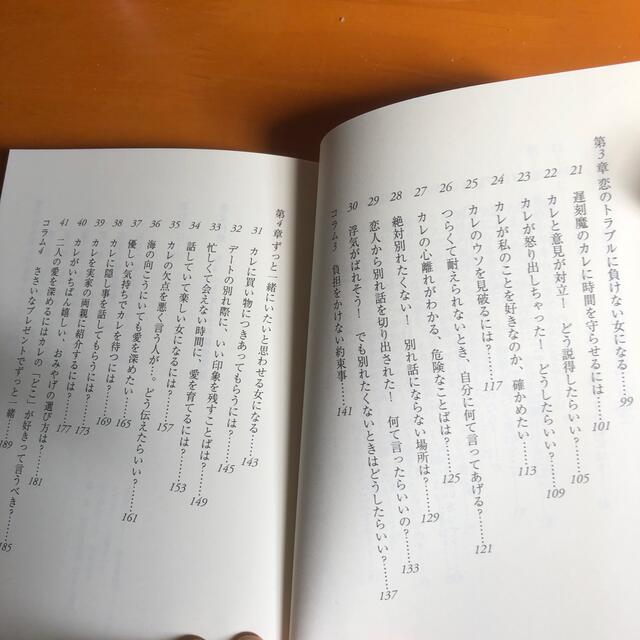 第3章 恋のトラブルに負けない女になる……99
21 遅刻魔のカレに時間を守らせるには……101
22 カレと意見が対立! どう説得したらいい?……105
23 カレが怒り出しちゃった! どうしたらいい?……109
24 カレが私のことを好きなのか、確かめたい……113
25 カレのウソを見破るには?……117
26 つらくて耐えられないとき、自分に何て言ってあげる?……121
27 カレの心離れがわかる、危険なことばは?……125
28 絶対別れたくない! 別れ話にならない場所は?……129
29 恋人から別れ話を切り出された! 何て言ったらいいの?……133
30 浮気がばれそう! でも別れたくないときはどうしたらいい?……137
コラム3 負担をかけない約束事……141
第4章 ずっと一緒にいたいと思わせる女になる……143
31 カレに買い物につきあってもらうには?……145
32 デートの別れ際に、いい印象を残すことばは?……149
33 忙しくて会えない時間に、愛を育てるには?……153
34 話していて楽しい女になるには?……157
35 カレの欠点を悪く言う人が…。どう伝えたらいい?……161
36 海の向こうにいても愛を深めたい……165
37 優しい気持ちでカレを待つには?……169
38 カレに隠し事を話してもらうには?……173
39 カレを実家の両親に紹介するには?……177
40 カレがいちばん嬉しい、おみやげの選び方は?……181
41 二人の愛を深めるにはカレの「どこ」が好きって言うべき?……185
コラム4 ささいなプレゼントでずっと一緒……189